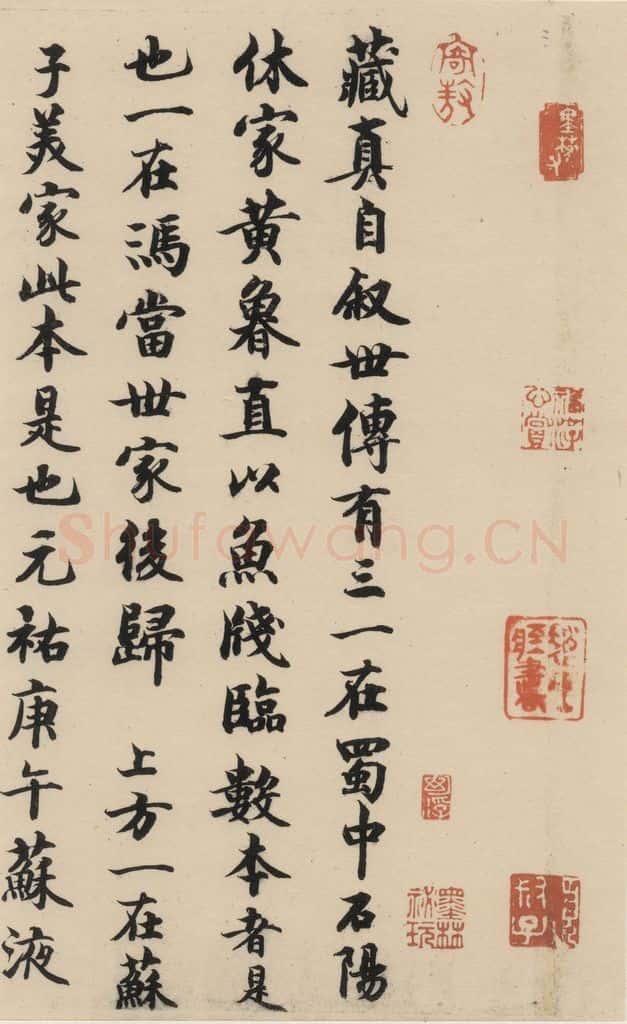 藏真自叙世傳有三一在蜀中石陽
休家黄魯直以魚牋臨數本者是
也一在馮當世家後歸 上方一在蘇
子美家此本是也元祐庚午蘇液
墨林
子孫
墨林祕玩
Shufawang.CN